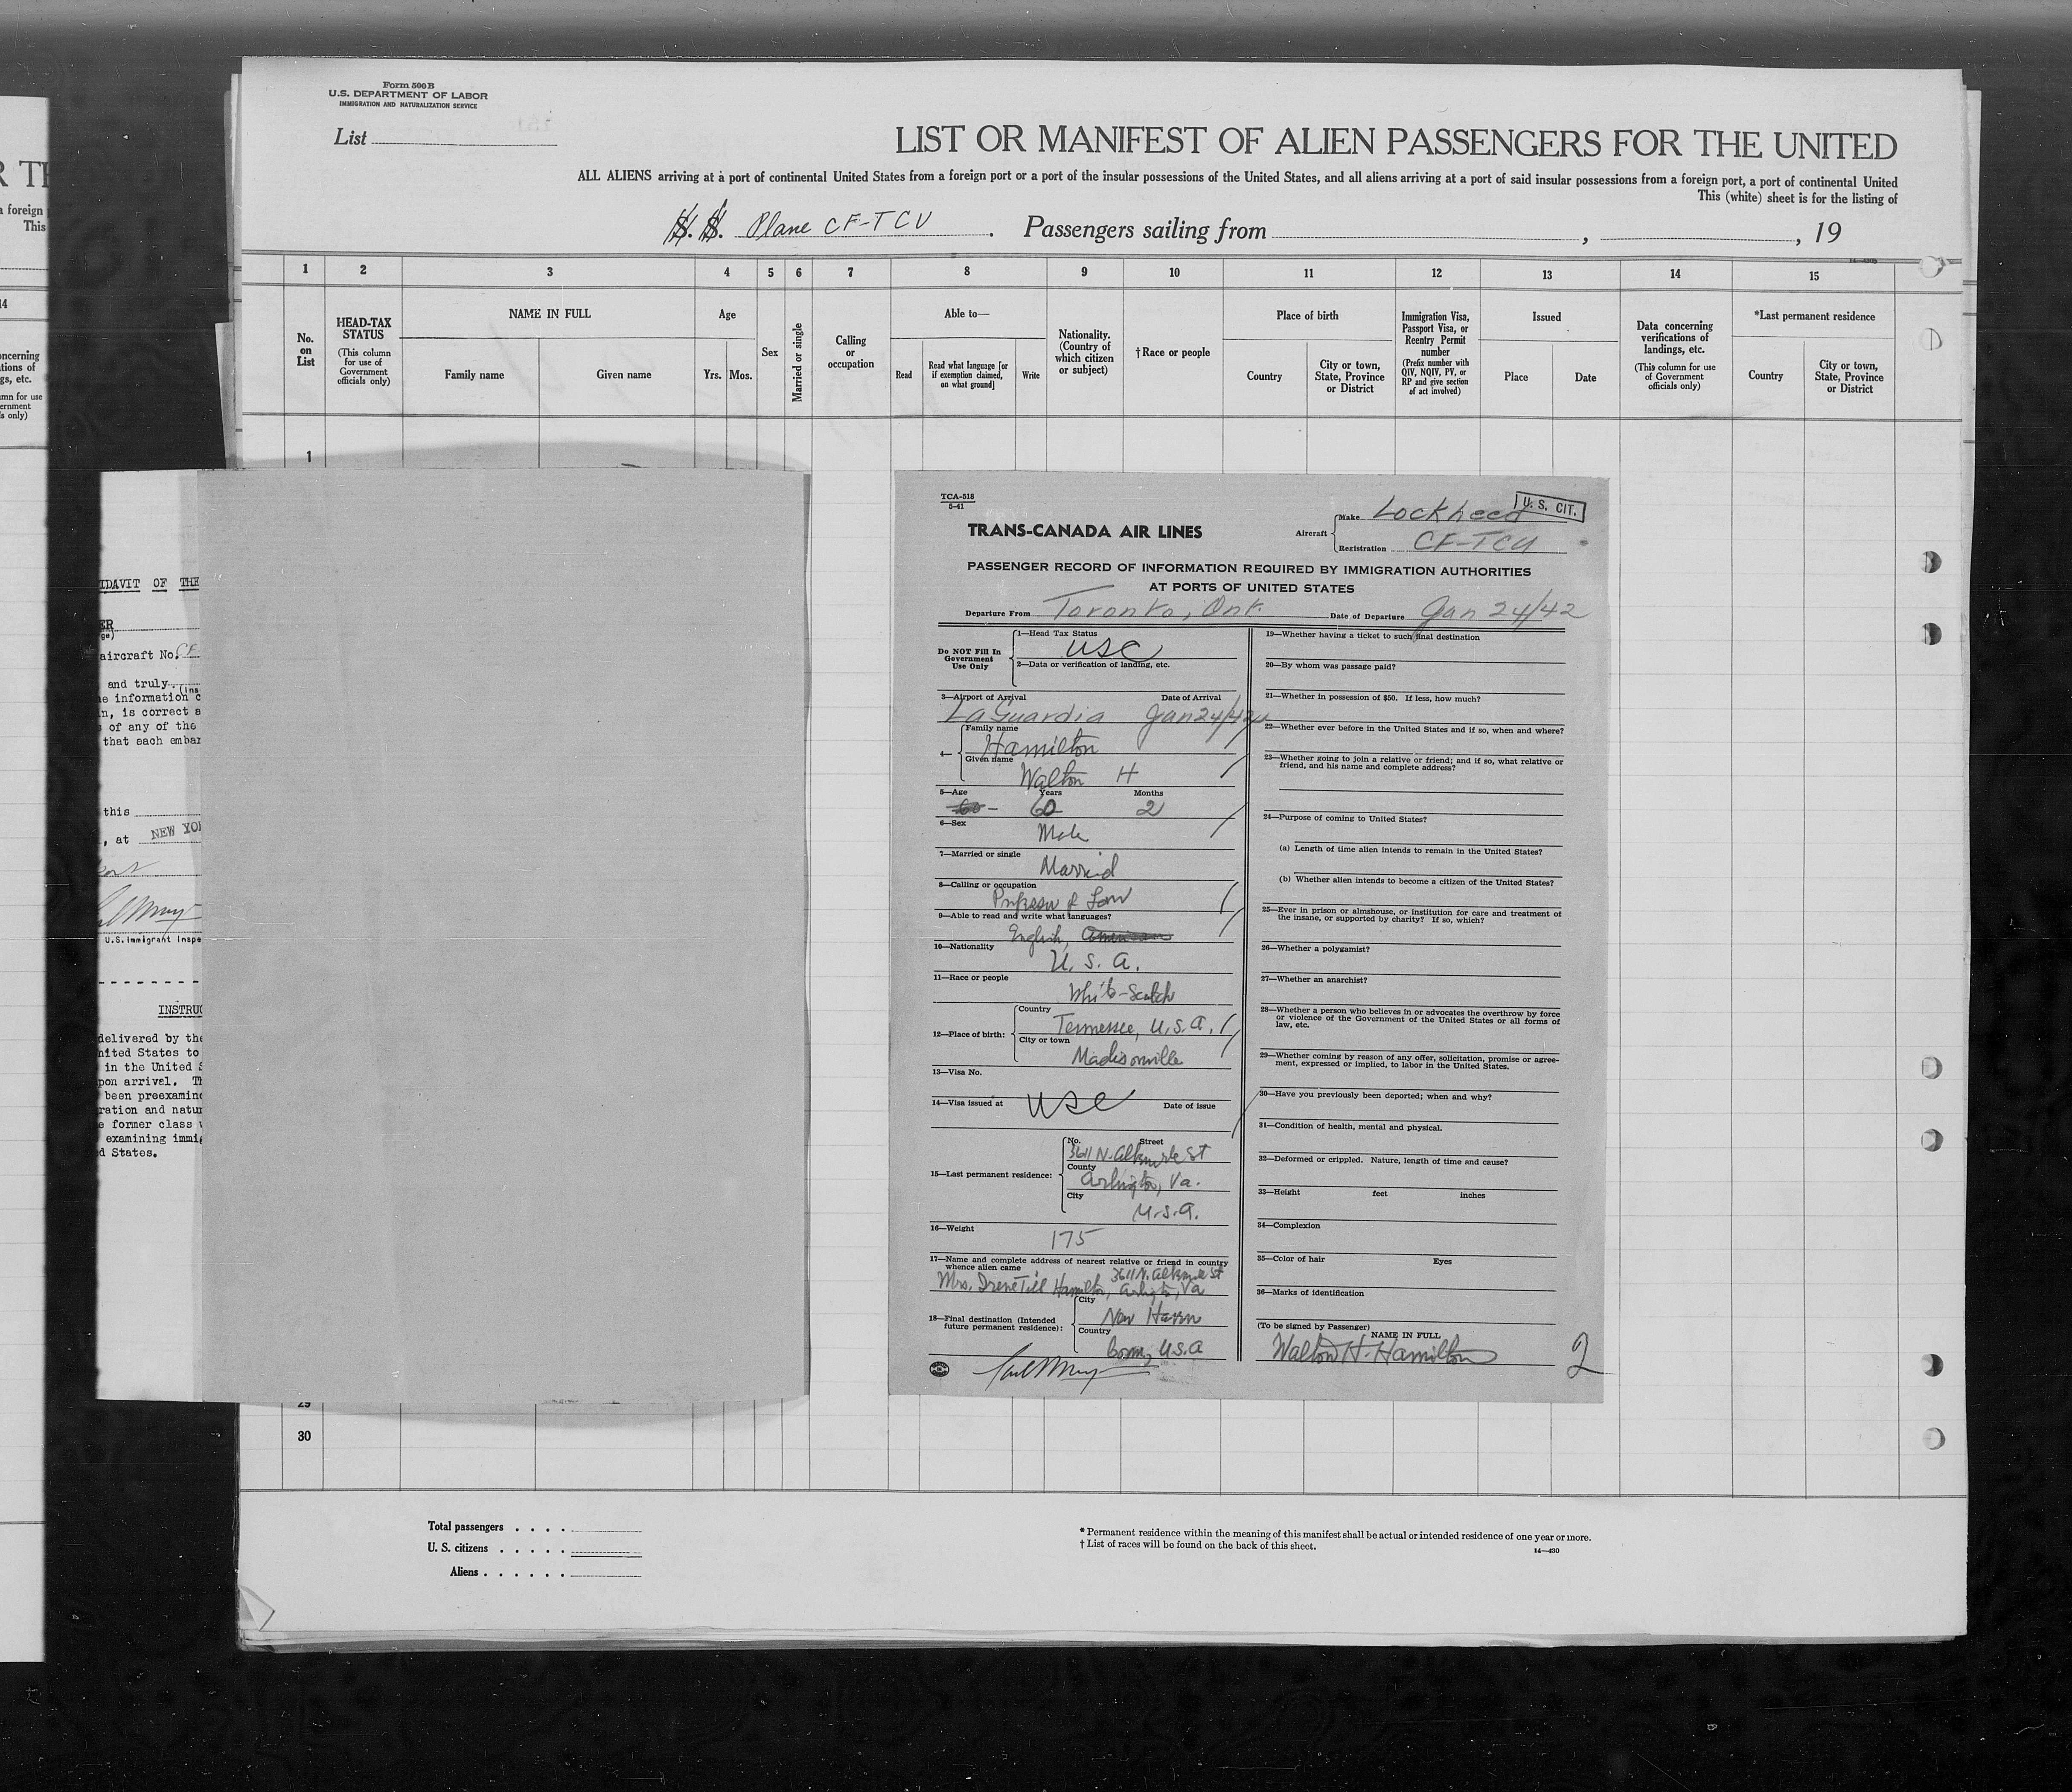 R TH
a foreign
This
14
oncerning
tions of
gs, etc.
mn for use
ernment
ls only)
Form 500 B
U.S. DEPARTMENT OF LABOR
IMMIGRATION AND NATURALIZATION SERVICE
List
LIST OR MANIFEST OF ALIEN PASSENGERS FOR THE UNITED
ALL ALIENS arriving at a port of continental United States from a foreign port or a port of the insular possessions of the United States, and all aliens arriving at a port of said insular possessions from a foreign port, a port of continental United
This (white) sheet is for the listing of
S. S. Plane CF-TCU . Passengers sailing from , , 19
1 2 3 4 5 6 7 8 9 10 11 12 13 14 15
No. on List
HEAD-TAX STATUS
(This column for use of Government officials only)
NAME IN FULL
Family name
Given name
Age
Yrs.
Mos.
Sex
Married or single
Calling or occupation
Able to—
Read
Read what language [or if exemption claimed, on what ground]
Write
Nationality. (Country of which citizen or subject)
†Race or people
Place of birth
Country
City or town, State, Province or District
Immigration Visa, Passport Visa, or Reentry Permit number
(Prefix number with QIV, NQIV, PV, or RP and give section of act involved)
Issued
Place
Date
Data concerning verifications of landings, etc.
(This column for use of Government officials only)
*Last permanent residence
Country
City or town, State, Province or District
1
IDAVIT OF THE
ER
aircraft No. CF
and truly
e information c
n, is correct a
of any of the
that each embar
this
, at NEW YOR
U.S. Immigrant Inspe
INSTRUC
delivered by the
nited States to
in the United S
pon arrival. Th
been preexamine
ration and natur
e former class w
examining immig
d States.
TCA-518
5-41
U. S. CIT.
TRANS-CANADA AIR LINES
Aircraft
Make Lockheed
Registration CF-TCU
PASSENGER RECORD OF INFORMATION REQUIRED BY IMMIGRATION AUTHORITIES
AT PORTS OF UNITED STATES
Departure From Toronto, Ont. Date of Departure Jan 24/42
Do NOT Fill In Government Use Only
1—Head Tax Status
USC
2—Data or verification of landing, etc.
3—Airport of Arrival Date of Arrival
LaGuardia Jan 24/42
4—
Family name
Hamilton
Given name
Walton H
5—Age Years Months
60 - 60 2
6—Sex
Male
7—Married or single
Married
8—Calling or occupation
Professor of Law
9—Able to read and write what languages?
English, American
10—Nationality
U. S. A.
11—Race or people
White-Scotch
12—Place of birth:
Country
Tennessee, U.S.A.
City or town
Madisonville
13—Visa No.
14—Visa issued at USC Date of issue
15—Last permanent residence:
No. Street
3611 N. St
County
Arlington, Va.
City
U.S.A.
16—Weight
175
17—Name and complete address of nearest relative or friend in country
whence alien came 3611 N. St
Mrs. Irene Till Hamilton, Arlington, Va
18—Final destination (Intended future permanent residence):
City
New Haven
Country
Conn, U.S.A
19—Whether having a ticket to such final destination
20—By whom was passage paid?
21—Whether in possession of $50. If less, how much?
22—Whether ever before in the United States and if so, when and where?
23—Whether going to join a relative or friend; and if so, what relative or
friend, and his name and complete address?
24—Purpose of coming to United States?
(a) Length of time alien intends to remain in the United States?
(b) Whether alien intends to become a citizen of the United States?
25—Ever in prison or almshouse, or institution for care and treatment of
the insane, or supported by charity? If so, which?
26—Whether a polygamist?
27—Whether an anarchist?
28—Whether a person who believes in or advocates the overthrow by force
or violence of the Government of the United States or all forms of
law, etc.
29—Whether coming by reason of any offer, solicitation, promise or agree-
ment, expressed or implied, to labor in the United States.
30—Have you previously been deported; when and why?
31—Condition of health, mental and physical.
32—Deformed or crippled. Nature, length of time and cause?
33—Height feet inches
34—Complexion
35—Color of hair Eyes
36—Marks of identification
(To be signed by Passenger)
NAME IN FULL
Walton H. Hamilton
2
29
30
Total passengers
U. S. citizens
Aliens
* Permanent residence within the meaning of this manifest shall be actual or intended residence of one year or more.
† List of races will be found on the back of this sheet.
14—430